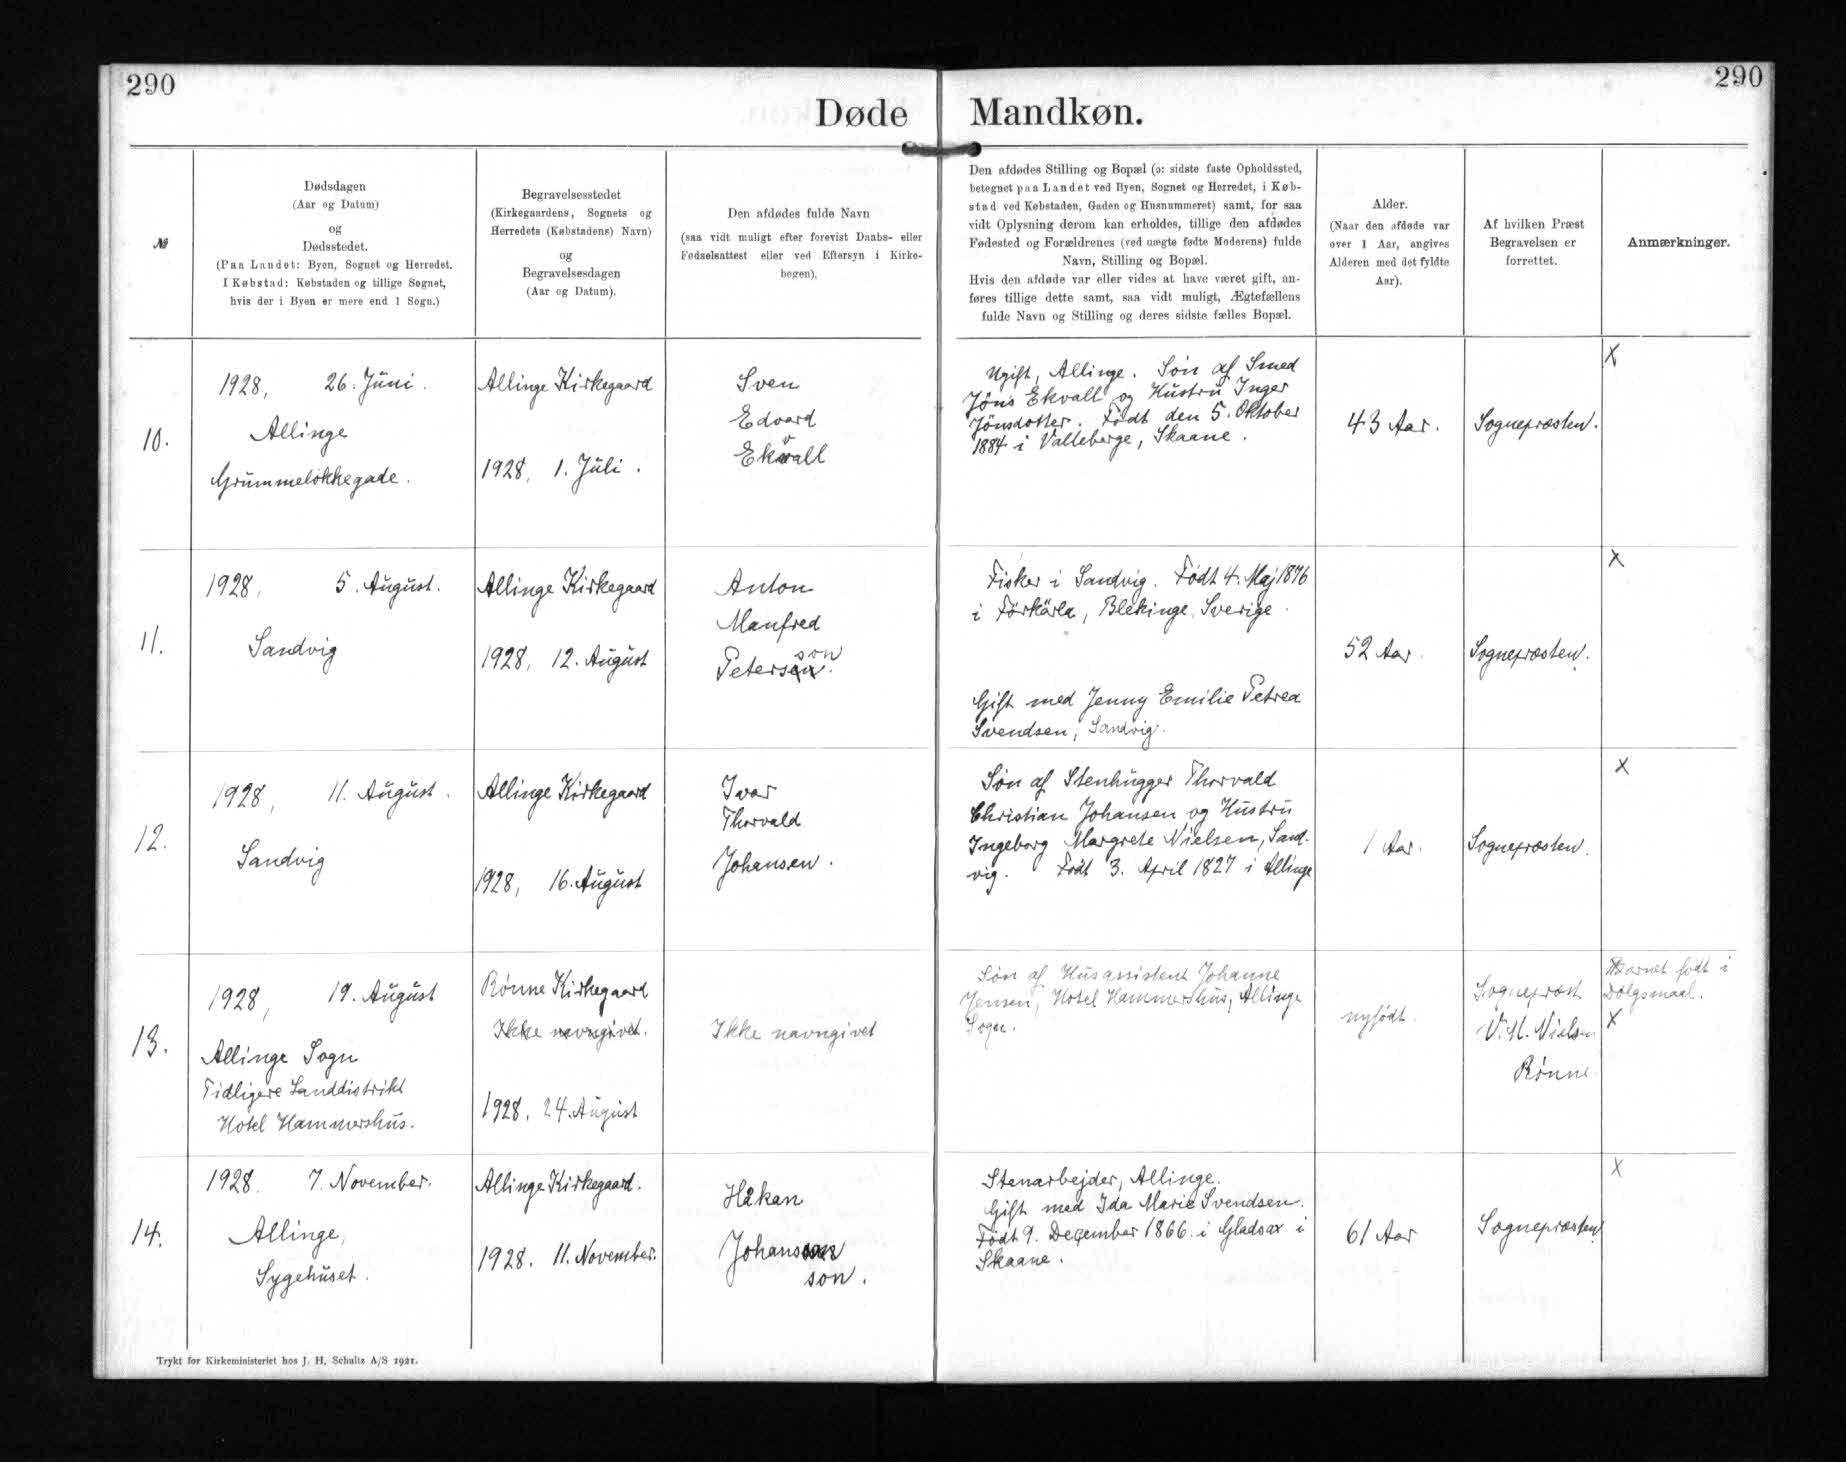 290
290
Døde Mandkøn.
№
Dødsdagen
(Aar og Datum)
og
Dødsstedet.
(Paa Landet: Byen, Sognet og Herredet.
I Købstad: Købstaden og tillige Sognet,
hvis der i Byen er mere end 1 Sogn.)
Begravelsesstedet
(Kirkegaardens, Sognets og
Herredets (Købstadens) Navn)
og
Begravelsesdagen
(Aar og Datum).
Den afdødes fulde Navn
(saa vidt muligt efter forevist Daabs- eller
Fødselsattest eller ved Eftersyn i Kirke-
bogen).
Den afdødes Stilling og Bopæl (ɔ: sidste faste Opholdssted,
betegnet paa Landet ved Byen, Sognet og Herredet, i Køb-
stad ved Købstaden, Gaden og Husnummeret) samt, for saa
vidt Oplysning derom kan erholdes, tillige den afdødes
Fødested og Forældrenes (ved uægte fødte Moderens) fulde
Navn, Stilling og Bopæl.
Hvis den afdøde var eller vides at have været gift, an-
føres tillige dette samt, saa vidt muligt, Ægtefællens
fulde Navn og Stilling og deres sidste fælles Bopæl.
Alder.
(Naar den afdøde var
over 1 Aar, angives
Alderen med det fyldte
Aar).
Af hvilken Præst
Begravelsen er
forrettet.
Anmærkninger.
10.
1928, 26. Juni.
Allinge
Grummeløkkegade.
Allinge Kirkegaard
1928, 1. Juli.
Sven
Edvard
Ekvall
Ugift, Allinge. Søn af Smed
Jöns Ekvall og Hustru Inger
Jönsdotter. Født den 5. Oktober
1884 i Valleberge, Skaane.
43 Aar.
Sognepræsten.
X
11.
1928, 5. August.
Sandvig
Allinge Kirkegaard
1928, 12. August
Anton
Manfred
son
Petersen.
Fisker i Sandvig. Født 4. Maj 1876
i Förkärla, Blekinge, Sverige.
Gift med Jenny Emilie Petrea
Svendsen, Sandvig.
52 Aar.
Sognepræsten.
X
12.
1928, 11. August.
Sandvig
Allinge Kirkegaard
1928, 16. August
Ivar
Thorvald
Johansen.
Søn af Stenhugger Thorvald
Christian Johansen og Hustru
Ingeborg Margrete Nielsen, Sand-
vig. Født 3. April 1827 i Allinge
1 Aar.
Sognepræsten.
X
13.
1928, 19. August
Allinge Sogn
Tidligere Landdistrikt
Hotel Hammershus.
Rønne Kirkegaard
Ikke navngivet.
1928, 24. August
Ikke navngivet
Søn af Husassistent Johanne
Jensen, Hotel Hammershus, Allinge
Sogn.
nyfødt.
Sognepræst
V. H. Nielsen
Rønne.
Barnet født i
Dølgsmaal.
X
14.
1928. 7. November.
Allinge,
Sygehuset.
Allinge Kirkegaard.
1928. 11. November.
Håkan
Johansson
son.
Stenarbejder, Allinge.
Gift med Ida Marie Svendsen.
Født 9. December 1866. i Gladsax i
Skaane.
61 Aar
Sognepræsten
X
Trykt for Kirkeministeriet hos J. H. Schultz A/S 1921.